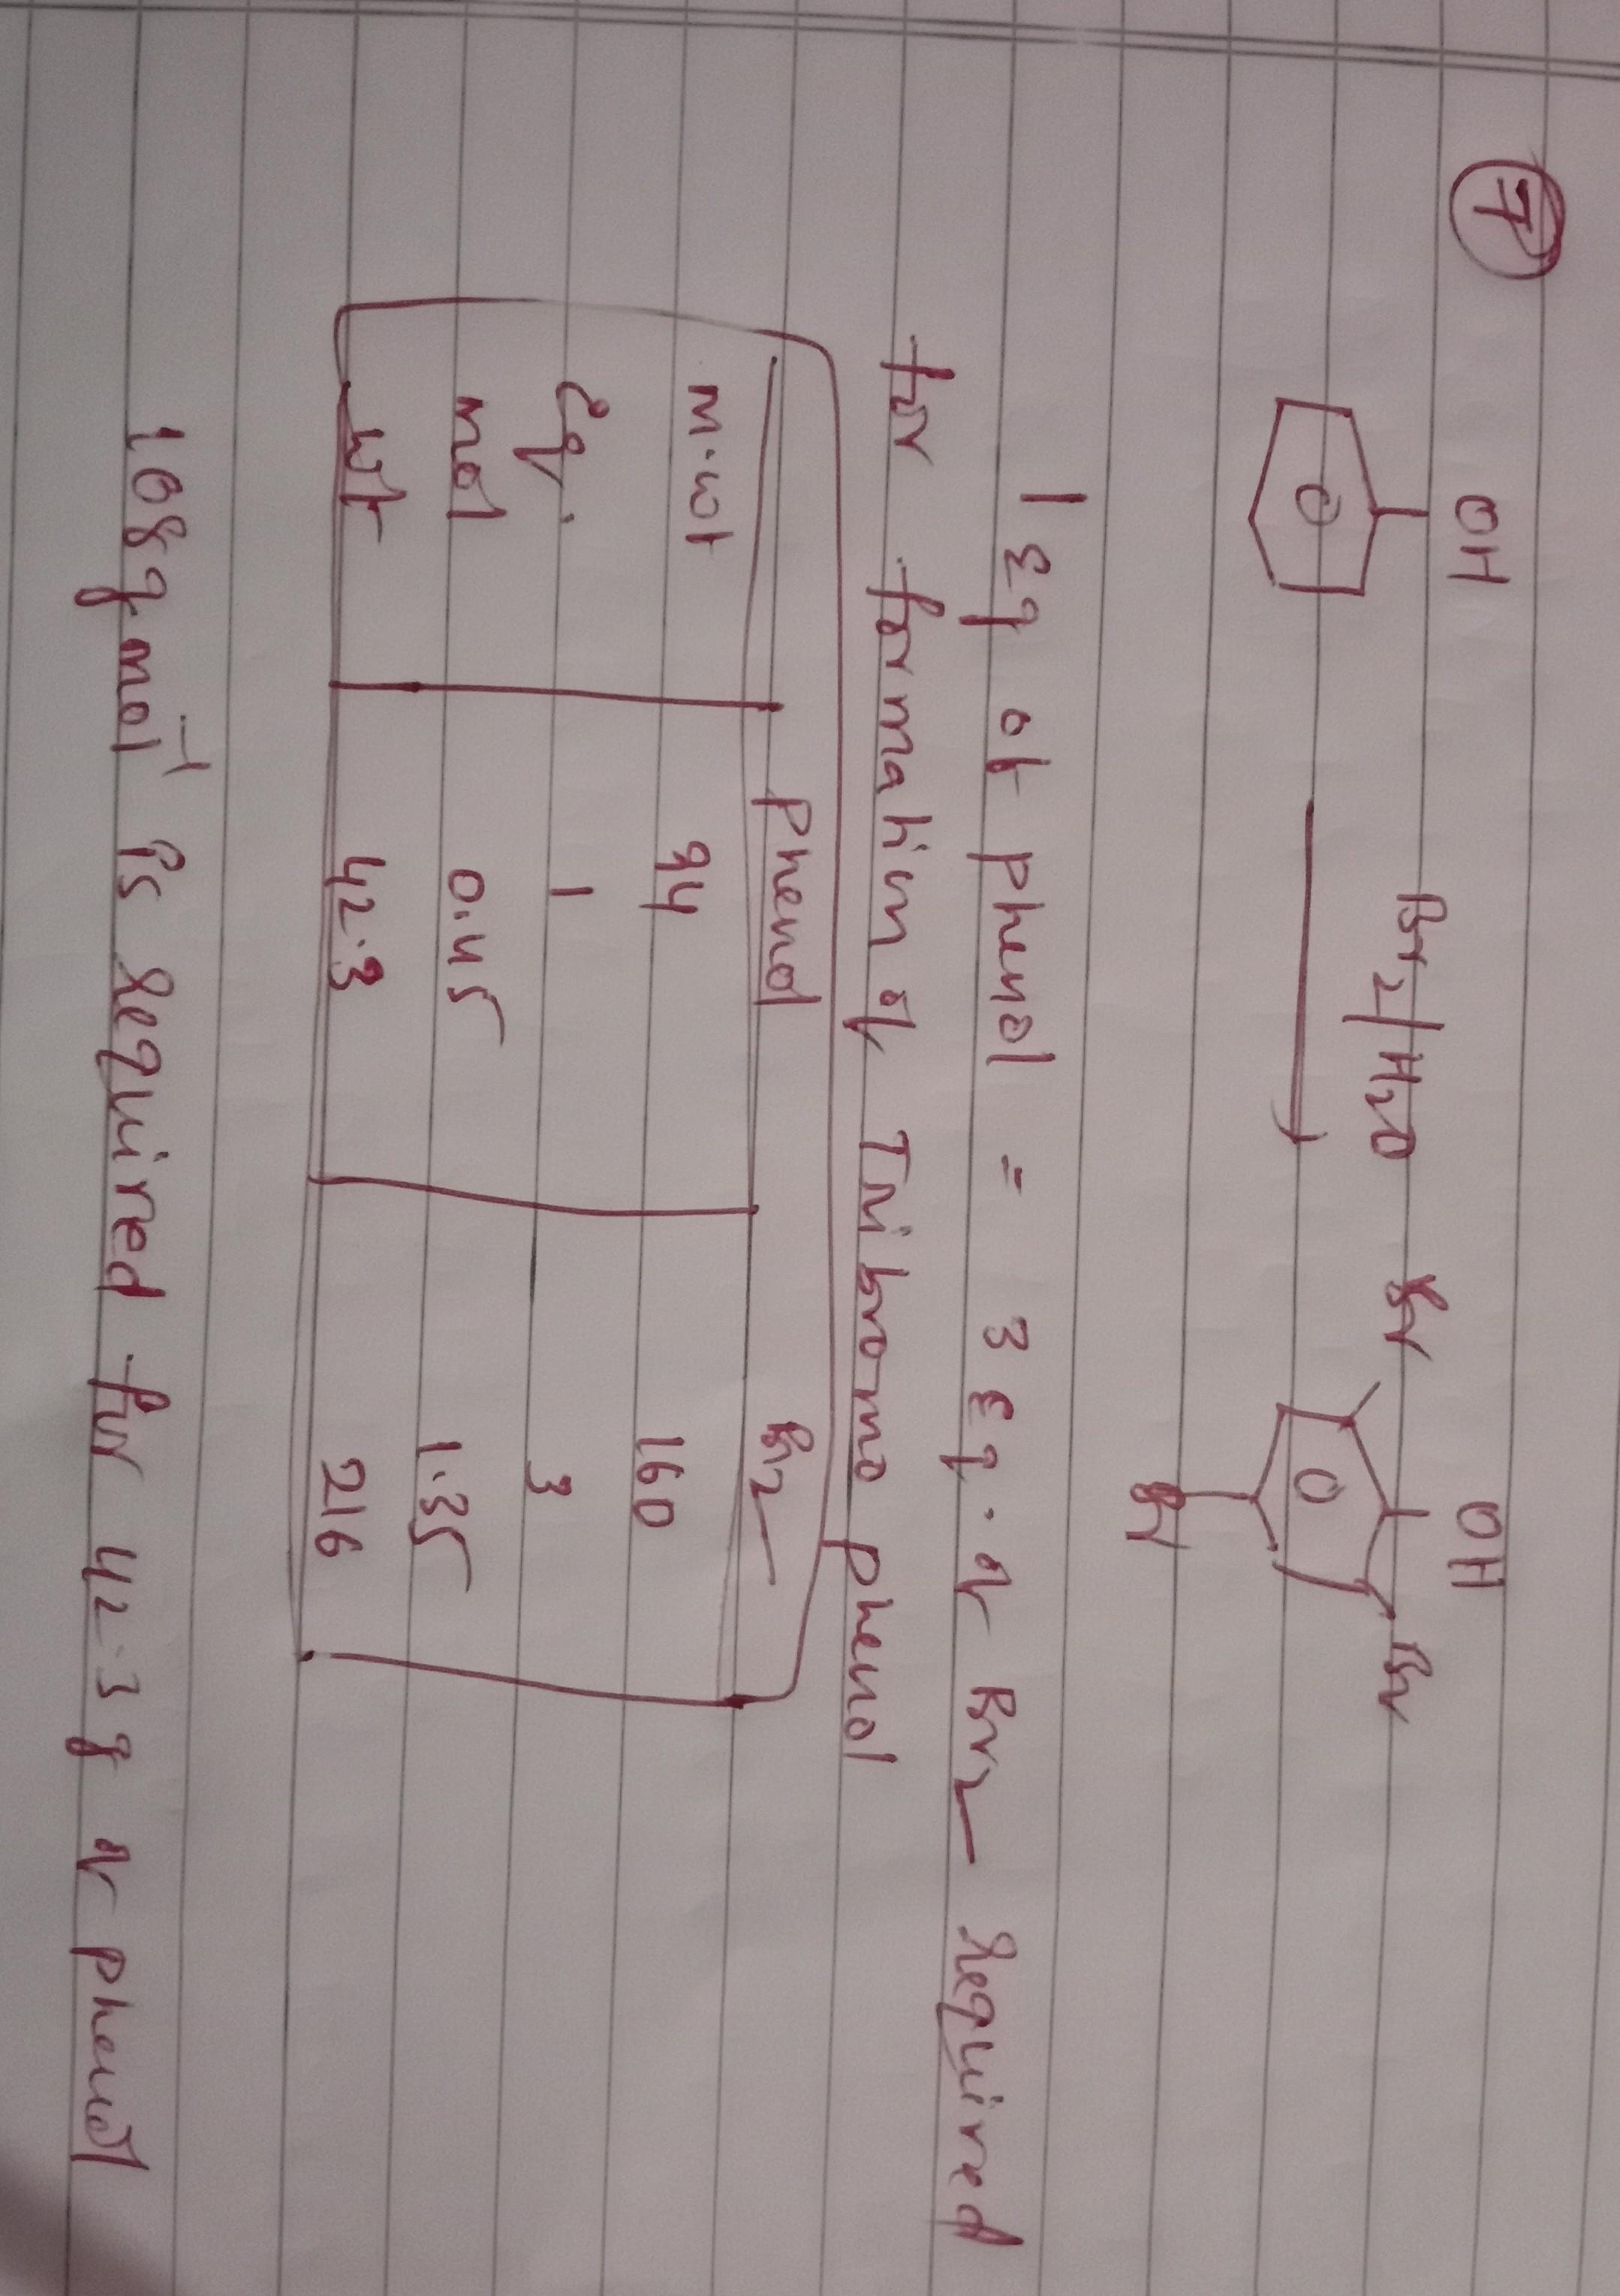 7
OH OH
Br2/H2O Br Br
Br
1 Eq of phenol = 3 Eq. of Br2 Required
for formation of Tribromo phenol
Phenol Br2
M.wt 94 160
Eq. 1 3
mol 0.45 1.35
wt 42.3 216
108 g mol-1 is Required for 42.3 g of phenol